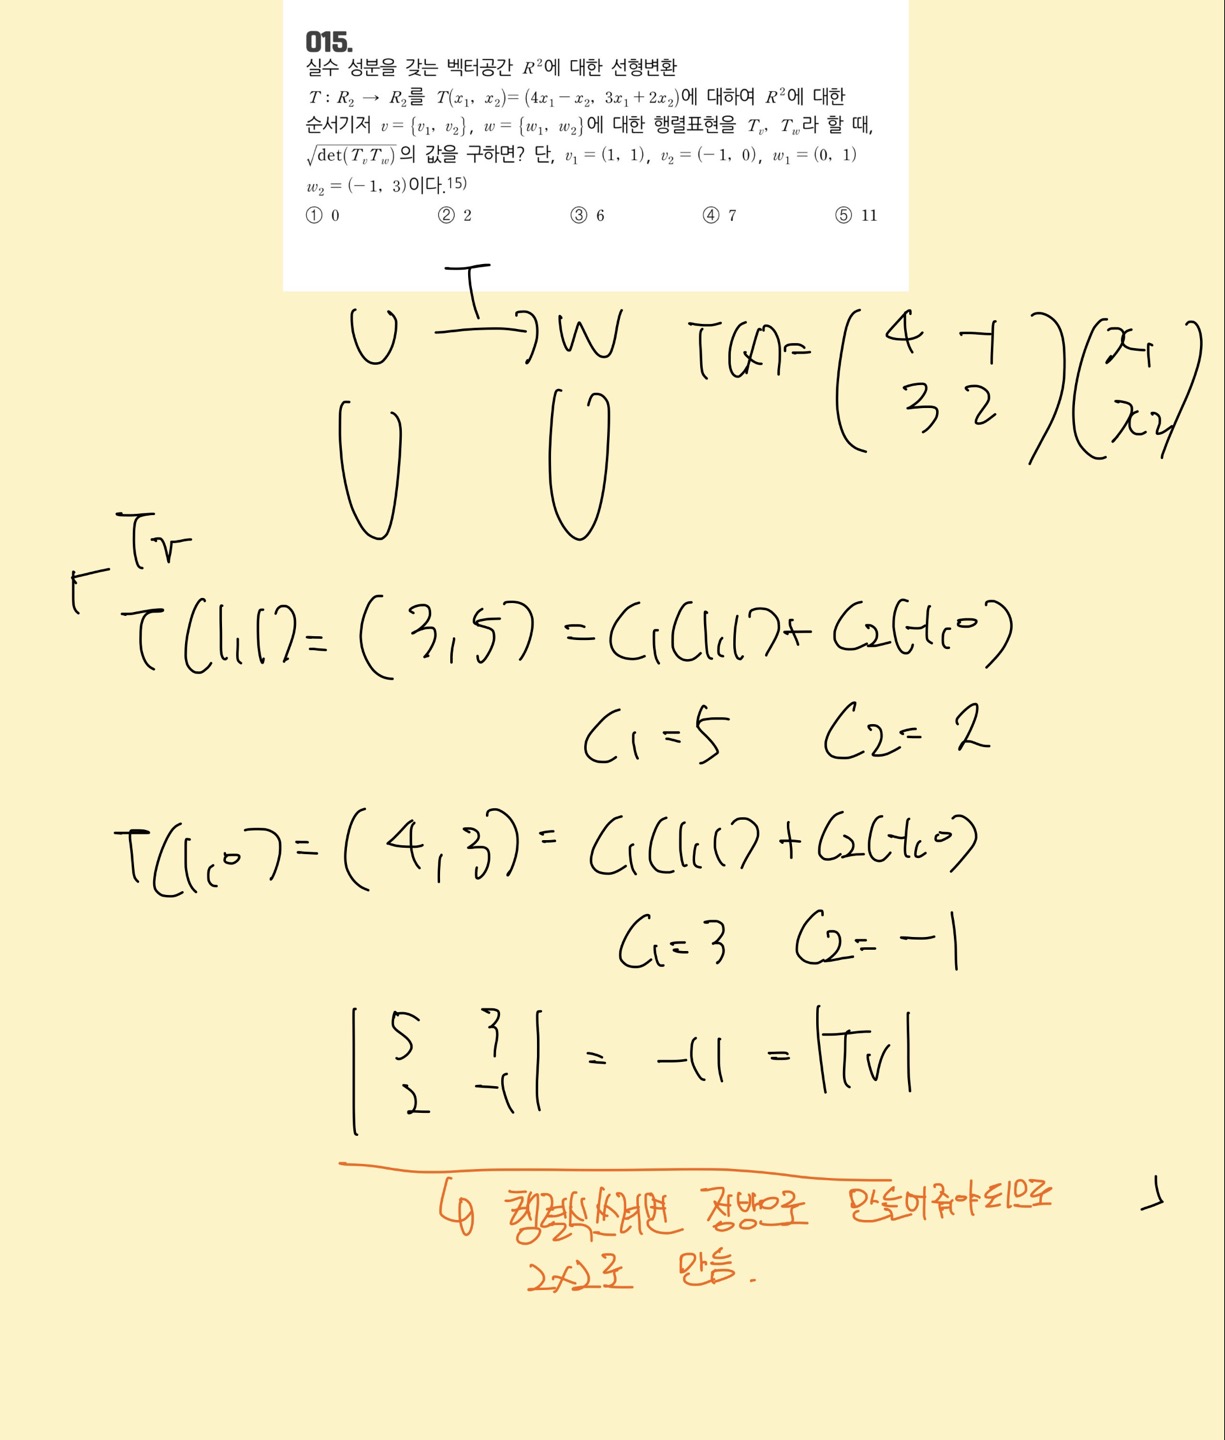 015.
실수 성분을 갖는 벡터공간 R²에 대한 선형변환
T : R₂ → R₂를 T(x₁, x₂)=(4x₁−x₂, 3x₁+2x₂)에 대하여 R²에 대한
순서기저 v = {v₁, v₂}, w = {w₁, w₂}에 대한 행렬표현을 Tᵥ, T_w라 할 때,
√det(TᵥT_w)의 값을 구하면? 단, v₁ = (1, 1), v₂ = (−1, 0), w₁ = (0, 1)
w₂ = (−1, 3)이다.15)
① 0 ② 2 ③ 6 ④ 7 ⑤ 11
T
U → W T(x)= (4 -1) (x1)
(3 2) (x2)
Tv
T(1,1) = (3,5) = C1(1,1) + C2(-1,0)
C1 = 5 C2 = 2
T(1,0) = (4,3) = C1(1,1) + C2(-1,0)
C1 = 3 C2 = -1
|5 3| = -11 = |Tv|
|2 -1|
↳ 행렬식쓰려면 정방으로 만들어줘야되므로
2×2로 만듬.